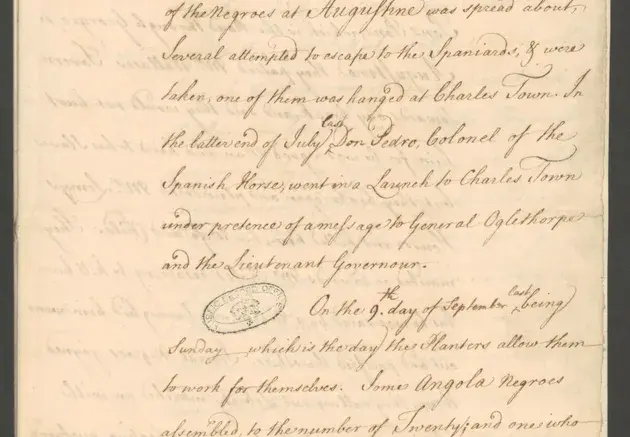 of the Negroes at Augustine was spread about,
Several attempted to escape to the Spaniards, & were
taken, one of them was hanged at Charles Town. In
the latter end of July last Don Pedro, Colonel of the
Spanish Horse, went in a Launch to Charles Town
under pretence of a message to General Oglethorpe
and the Lieutenant Governour.
On the 9.th day of September last being
Sunday which is the day the Planters allow them
to work for themselves. Some Angola Negroes
assembled, to the number of Twenty; and one who